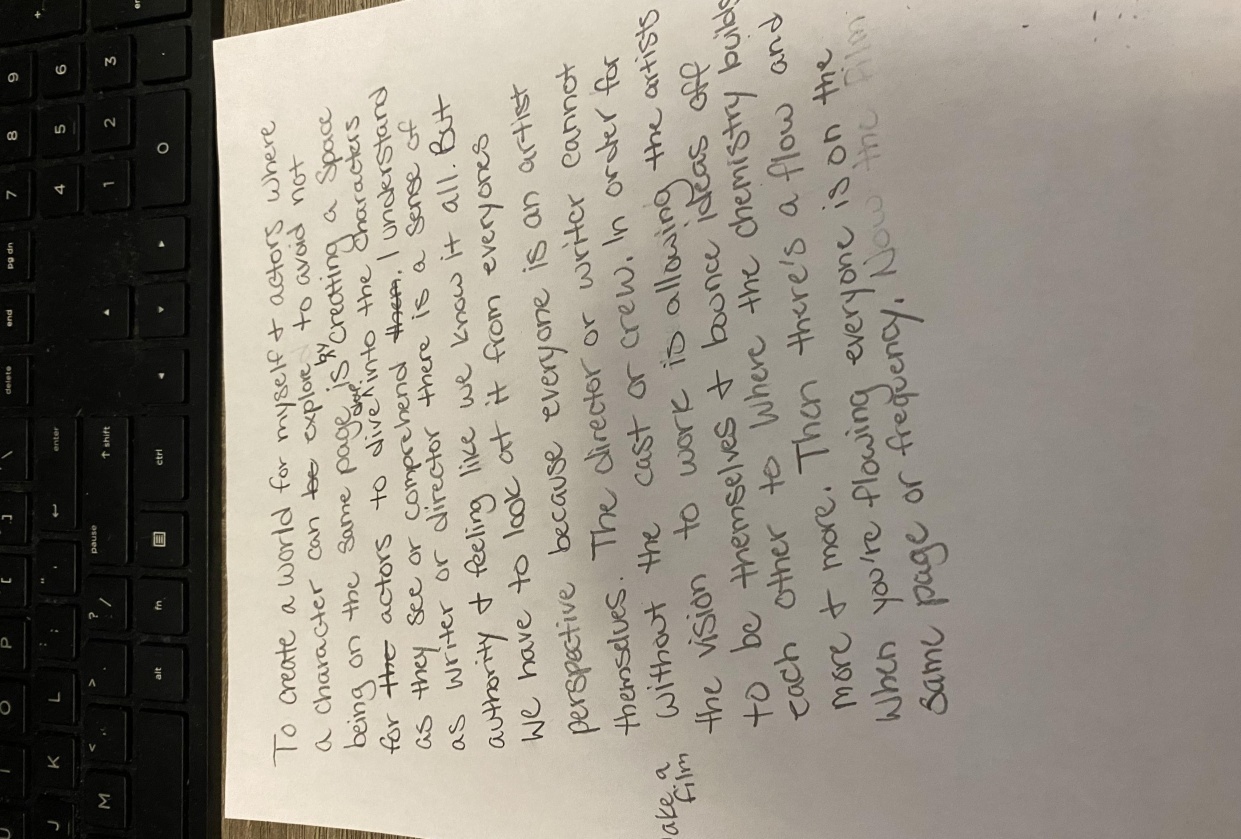 To create a world for myself & actors where
a character can be explore to avoid not
being on the same page is by creating a space
for the actors to dive deep into the characters
as they see or comprehend them. I understand
as writer or director there is a sense of
authority & feeling like we know it all. But
we have to look at it from everyones
perspective because everyone is an artist
themselves. The director or writer cannot
make a film without the cast or crew. In order for
the vision to work is allowing the artists
to be themselves & bounce ideas off
each other to where the chemistry builds
more & more. Then there's a flow and
when you're flowing everyone is on the
same page or frequency. Now the film
9
6
3
.
8
5
2
0
7
4
1
pg dn
end
delete
\
enter
↑ shift
ctrl
pause
]
[
" '
: ;
? /
> .
< ,
P
O
L
K
J
M
fn
alt